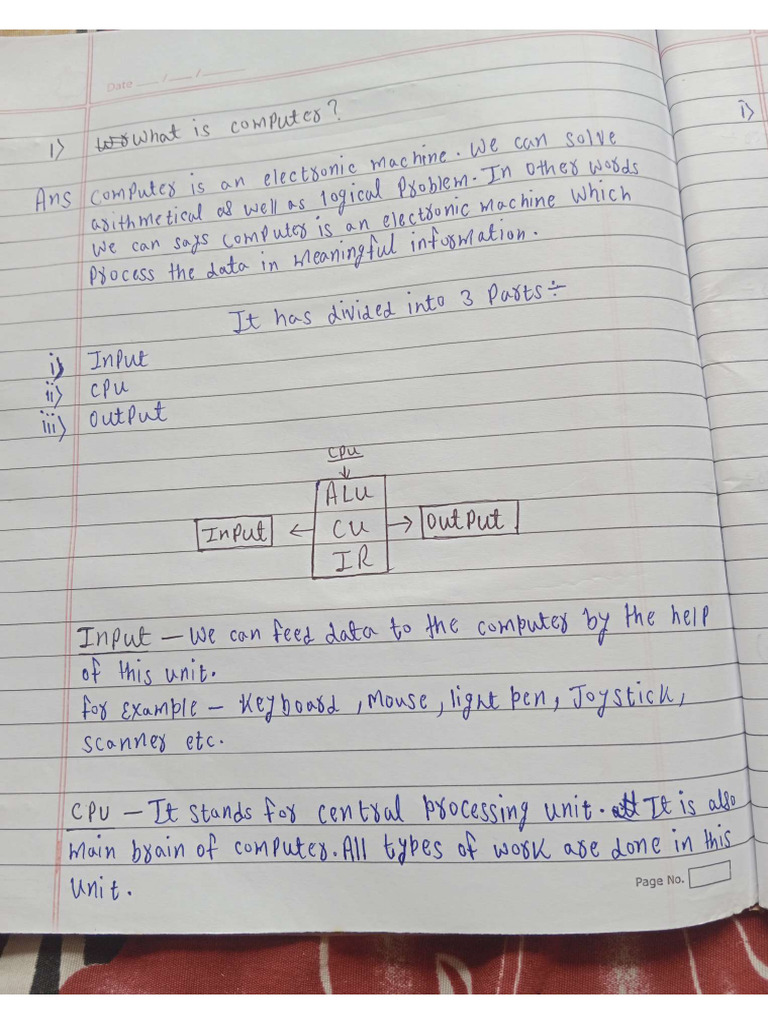 Date __ / __ / ____
1) What is computer?
i)
Ans Computer is an electronic machine. We can solve
arithmetical as well as logical Problem. In other words
we can says computer is an electronic machine which
Process the data in meaningful information.
It has divided into 3 Parts÷
i) Input
ii) CPU
iii) Output
CPU
↓
ALU
Input ← CU → Output
IR
Input – We can feed data to the computer by the help
of this unit.
for Example – Keyboard, Mouse, light pen, Joystick,
scanner etc.
CPU – It stands for central processing unit. It is also
main brain of computer. All types of work are done in this
unit.
Page No.